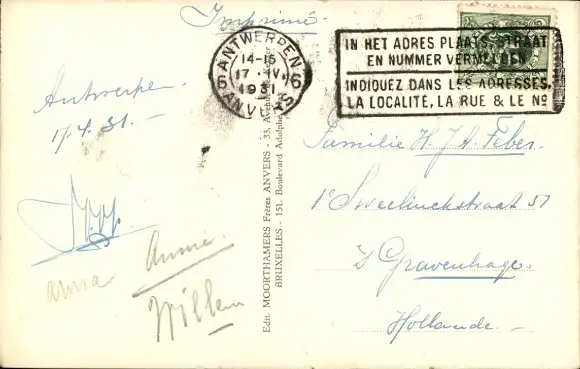 Imprimé.
ANTWERPEN
14-15
17 · IV.
1931
6 6
ANVERS
IN HET ADRES PLAATS, STRAAT
EN NUMMER VERMELDEN
INDIQUEZ DANS LES ADRESSES,
LA LOCALITÉ, LA RUE & LE Nº
Antwerpen
17.4.31.—
Annie.
anna
Willem
Edit. MOORTHAMERS Frères ANVERS - 33, Avenue
BRUXELLES - 151, Boulevard Adolphe
Familie H. J. A. Feber.
1e Sweelinckstraat 51
's Gravenhage.
Hollande.